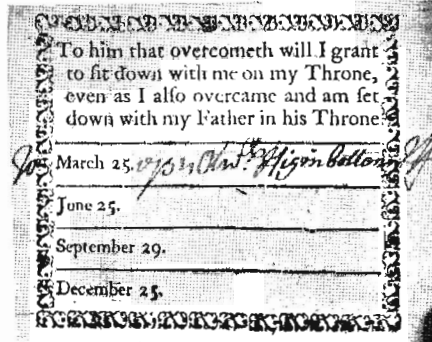 To him that overcometh will I grant
to ſit down with me on my Throne,
even as I alſo overcame and am ſet
down with my Father in his Throne
March 25. Higinbottom
June 25.
September 29.
December 25.